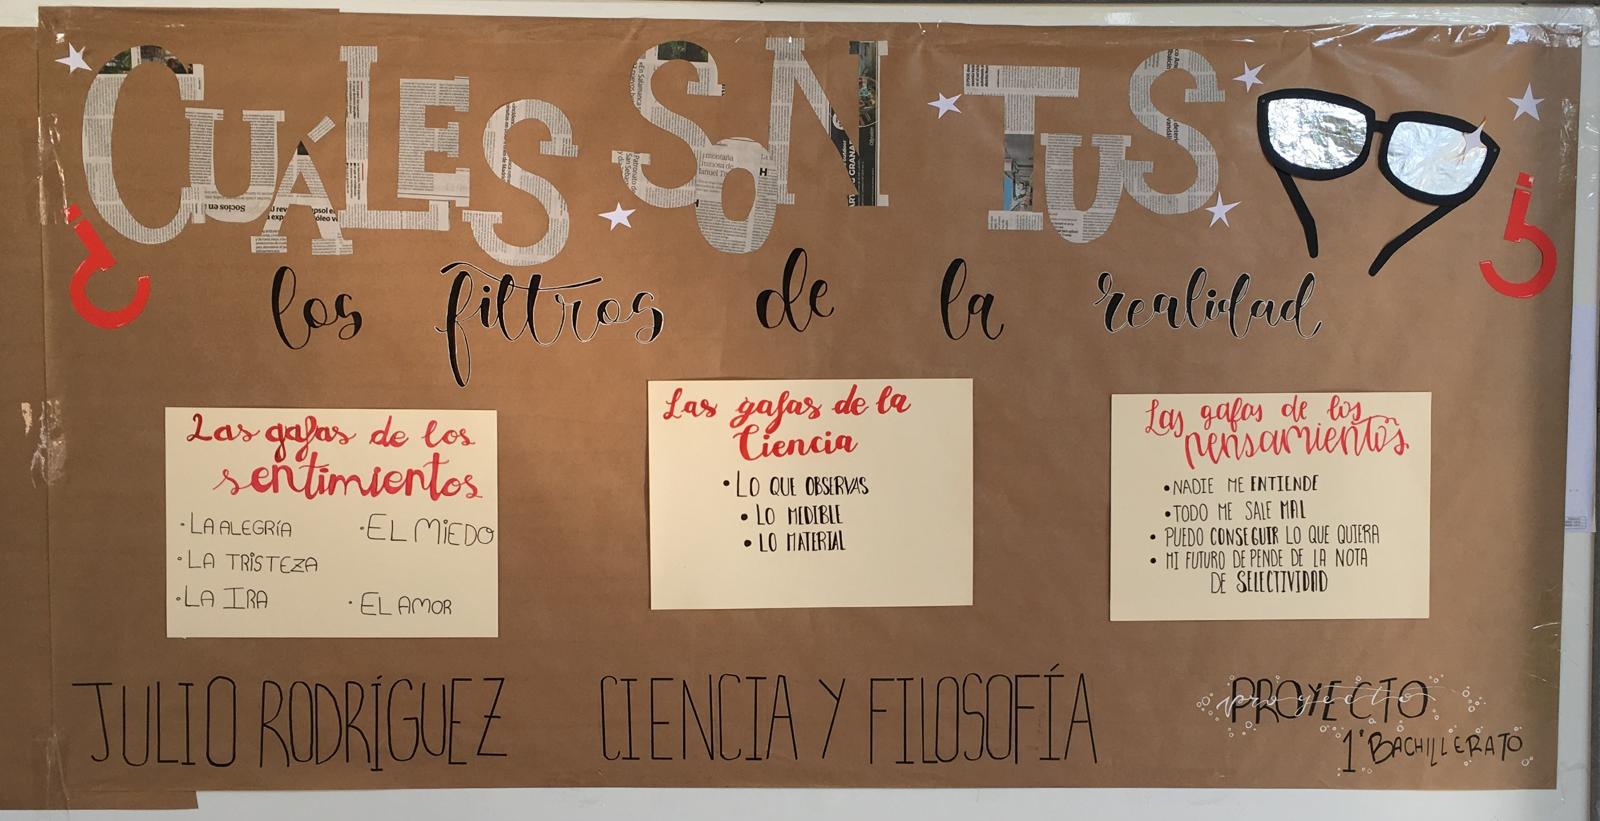 ¿CUÁLES SON TUS
los filtros de la realidad?
Las gafas de los
sentimientos
· LA ALEGRÍA
· EL MIEDO
· LA TRISTEZA
· LA IRA
· EL AMOR
Las gafas de la
Ciencia
• LO QUE OBSERVAS
• LO MEDIBLE
• LO MATERIAL
Las gafas de los
pensamientos
• NADIE ME ENTIENDE
• TODO ME SALE MAL
• PUEDO CONSEGUIR LO QUE QUIERA
• MI FUTURO DEPENDE DE LA NOTA
DE SELECTIVIDAD
JULIO RODRÍGUEZ CIENCIA Y FILOSOFÍA
PROYECTO
proyecto
1º BACHILLERATO